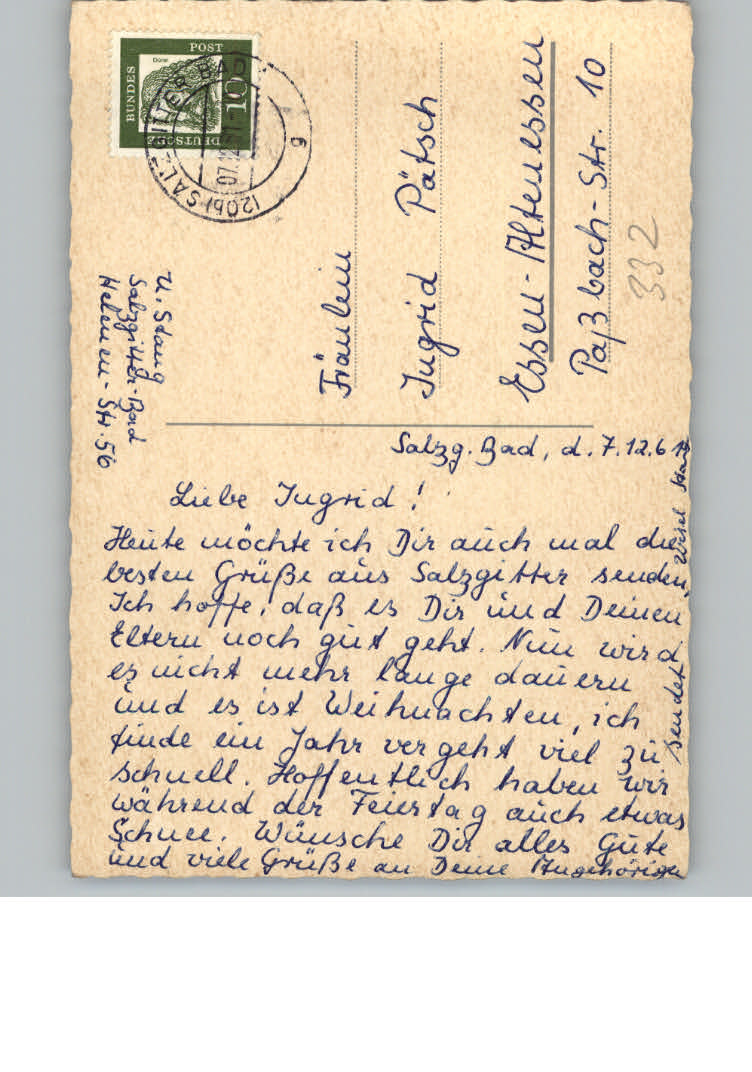 Salzg. Bad, d. 7.12.61
Liebe Ingrid!
Heute möchte ich Dir auch mal die
besten Grüße aus Salzgitter senden,
Ich hoffe, daß es Dir und Deinen
Eltern noch gut geht. Nun wird
es nicht mehr lange dauern
und es ist Weihnachten, ich
finde ein Jahr vergeht viel zu
schnell. Hoffentlich haben wir
während der Feiertag auch etwas
Schnee. Wünsche Dir alles Gute
und viele Grüße an Deine Angehörigen
sendet
U. Stang
Salzgitter-Bad
Helenen-Str. 56
Fräulein
Ingrid Pätsch
Essen-Altenessen
Paßbach-Str. 10
332
DEUTSCHE
BUNDES
POST
10
Dürer
(20b) SALZGITTER BAD
07.12.61
g